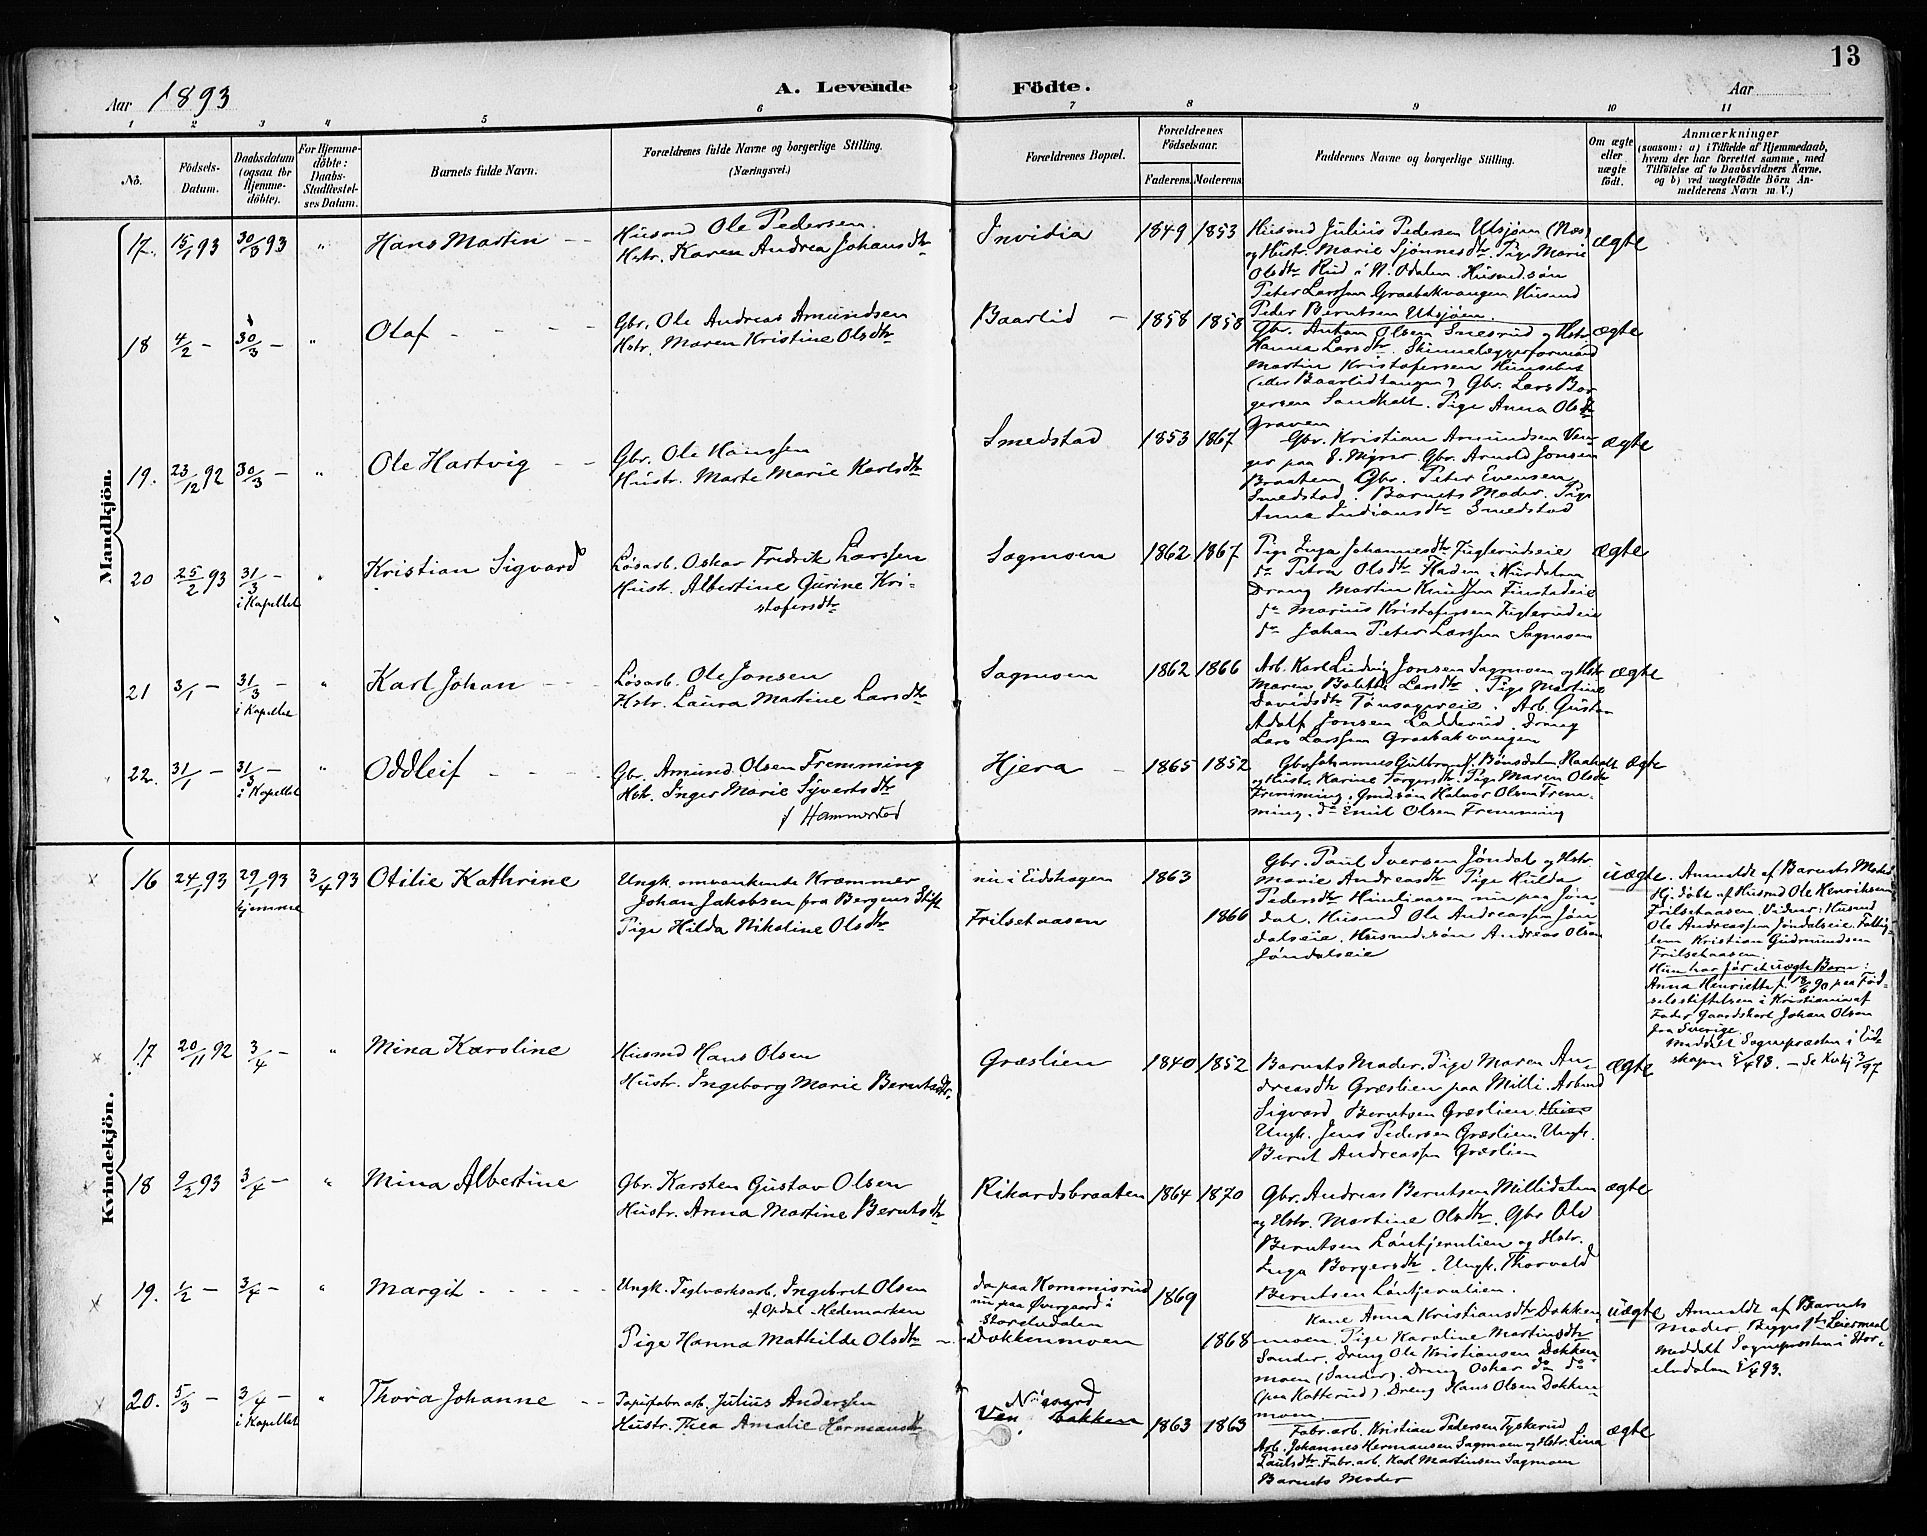 13
Aar 1893
A. Levende Födte.
Aar
1 2 3 4 5 6 7 8 9 10 11
No.
Födsels-Datum.
Daabsdatum (ogsaa for Hjemmedöbte).
For Hjemmedöbte: Daabs-Stadfestelses Datum.
Barnets fulde Navn.
Forældrenes fulde Navne og borgerlige Stilling. (Næringsvei.)
Forældrenes Bopæl.
Forældrenes Födselsaar.
Faderens. Moderens.
Faddernes Navne og borgerlige Stilling.
Om ægte eller uægte födt.
Anmærkninger
(saasom: a) i Tilfælde af Hjemmedaab, hvem der har forrettet samme, med Tilföielse af to Daabsvidners Navne. og b) ved uægtefödte Börn Anmelderens Navn m. V.)
Mandkjön.
17. 15/1 93 30/3 93 " Hans Martin - -
Husmd Ole Pedersen
Hstr. Karen Andrea Johansdtr
Invidia 1849 1853
Husmd Julius Pedersen Utsjøen (Nes)
og Hustr. Marie Sjønnesdtr. Pige Marie
Olsdtr Rud i N. Odalen. Husmdsøn
Peter Larssen Graabakvangen Husmd
Peder Berntsen Utsjøen.
ægte
18 4/2 - 30/3 - " Olaf - - - -
Gbr. Ole Andreas Amundsen
Hstr. Maren Kristine Olsdtr
Baarlid - 1858 1858
Gbr. Anton Olsen Smesrud og Hstr
Hanna Larsdtr.
Martin Kristofersen
(eller Baarlidtangen) Gbr. Lars Bor-
gersen Sandholt. Pige Anna Olsdtr
Graven
ægte
19. 23/12 92 30/3 - " Ole Hartvig - -
Gbr. Ole Hanssen
Hustr. Marte Marie Karlsdtr
Smedstad 1853 1867
Gbr. Kristian Amundsen Ven-
ger paa Gbr. Arnold Jonsen
Braaten Gbr. Peter Evensen
Smedstad. Barnets Moder. Pige
Anna Smedstad
ægte
20 25/2 93 31/3 - i Kapellet " Kristian Sigvard
Løsarb. Oskar Fredrik Larssen
Hustr. Albertine Gurine Kri-
stofersdtr
Sagmoen 1862 1867
Pige Inga Johannesdtr Fuglerudseie
do Petra Olsdtr Haden i Hurdalen
Dreng Martin Knudsen Finstadeie
do Marius Kristofersen Fuglerudeie
do Johan Peter Larssen Sagmoen
ægte
21 3/1 - 31/3 - i Kapellet " Karl Johan - - -
Løsarb. Ole Jonsen
Hstr. Laura Martine Larsdtr
Sagmoen 1862 1866
Arb. Karl Ludvig Jonsen Sagmoen og Hstr
Maren Bolette Larsdtr. Pige Martine
Davidsdtr Tønsagereie. Arb. Gustav
Adolf Jonsen Ladderud. Dreng
Lars Larssen Graabakvangen
ægte
22. 31/1 - 31/3 - i Kapellet " Oddleif - - - -
Gbr. Amund Olsen Fremming
Hstr. Inger Marie Syvertsdtr
f Hammerstad
Hjera - 1865 1852
Gbr Johannes Bønsdalen Raaholt
og Hustr. Karine Torgersdtr. Pige Maren Olsdtr
Fremming. Gmdsøn Halvor Olsen Frem-
ming. do Emil Olsen Fremming
ægte
Kvindekjön.
x 16 24/1 93 29/1 93 hjemme 3/4 93 Otilie Kathrine
Ungk. omvankende Kræmmer
Johan Jakobsen fra Bergens Stift
Pige Hilda Nikoline Olsdtr
nu i Eidskogen 1863
Frilsetaasen 1866
Gbr. Paul Iversen Jøndal og Hstr.
Marie Andreasdtr Pige Hulda
Pedersdtr nu paa Jøn-
dal. Husmd Ole Andreassen Jøn-
dalseie. Husmdssøn Andreas Olsen
Jøndalseie
uægte. Anmeldt af Barnets Moder
Hj. döbt af Husmd Ole Henriksen
Frilsetaasen. Vidner: Husmd
Ole Andreassen Jøndalseie
Kristian Gudmundsen
Frilsetaasen.
Hun har før et uægte Barn:
Anna Henriette f. 90 paa Fød-
selsstiftelsen i Kristiania af
Fader Gaardskarl Johan Olsen
fra Sverige.
Meddelt Sognepræsten i Eid-
skogen 5/4 93. - Se 3/97
x 17 20/11 92 3/4 - " Mina Karoline
Husmd Hans Olsen
Hustr. Ingeborg Marie Berntsdtr.
Græslien 1840 1852
Barnets Moder. Pige Maren An-
dreasdtr Græslien paa Milli. Arbmd
Sigvard Berntsen Græslien
Ungk. Jens Pedersen Græslien. Ungk.
Bernt Andreassen Græslien
ægte
x 18 9/2 93 3/4 - " Mina Albertine
Gbr. Karsten Gustav Olsen
Hustr. Anna Martine Berntsdtr
Rikardsbraaten 1864 1870
Gbr. Andreas Berntsen Millidalen
og Hstr. Martine Olsdtr. Gbr Ole
Berntsen Løntjernlien og Hstr.
Inga Borgersdtr. Ungk. Thorvald
Berntsen Løntjernlien.
ægte
x 19. 1/2 - 3/4 - " Margit - - - - -
Ungk. Teglværksarb. Ingebret Olsen
af Opdal Hedemarken
Pige Hanna Mathilde Olsdtr -
da paa Kommisrud
nu paa Øvergaard i
Storelvdalen 1869
Dokkenmoen 1868
Kone Anna Kristiansdtr Dokken-
moen. Pige Karoline Martinsdtr
Sander. Dreng Ole Kristiansen Dokken-
moen (Sander). Dreng Oskar do do
(paa Katterud). Dreng Hans Olsen Dokken
moen
uægte Anmeldt af Barnets
Moder. Begges 1ste Leiermaal
meddelt Sognepræsten i Stor-
elvdalen 5/4 93.
20. 5/3 - 3/4 - i Kapellet " Thora Johanne - -
Papirfabr.arb. Julius Andersen
Hustr. Thea Amalie Hermansdtr
bakken 1863 1863
Fabr. arb. Kristian Pedersen Tyskerud
Arb. Johannes Hermansen Sagmoen og Hstr. Lina
Paulsdtr. Fabr. arb. Karl Martinsen Sagmoen
Barnets Moder
ægte